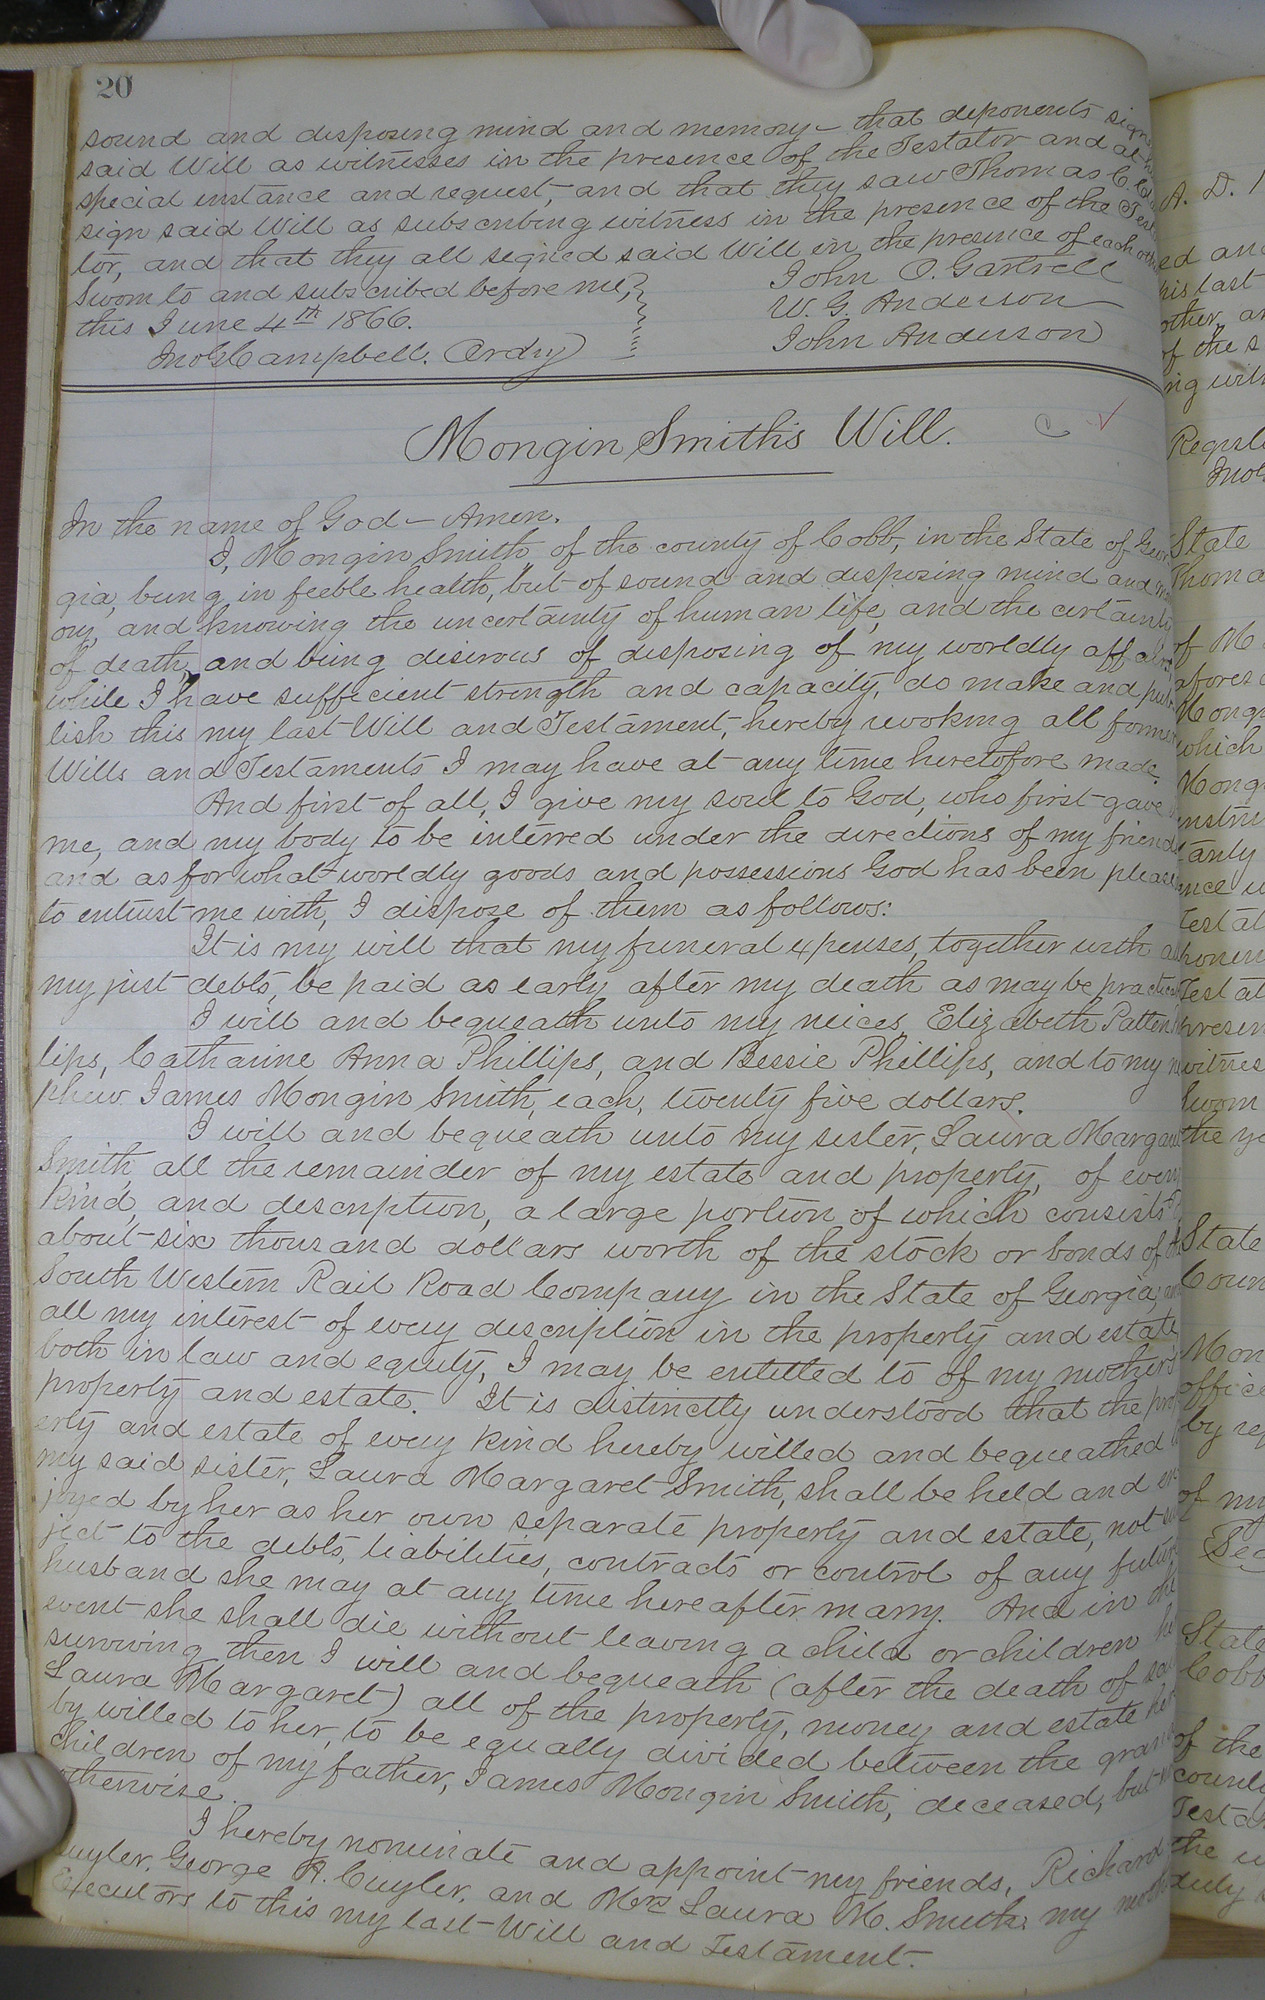 20
sound and disposing mind and memory – that deponents
said Will as witnesses in the presence of the Testator and at
special instance and request, and that they saw Thomas C.
sign said Will as subscribing witness in the presence of the
tor, and that they all signed said Will in the presence of each
Sworn to and subscribed before me,
this June 4th 1866.
Jno G Campbell. Ordry
John O. Gartrell
W. G. Anderson
John Anderson
Mongin Smith's Will.
In the name of God – Amen.
I, Mongin Smith of the county of Cobb, in the State of Geor
gia, being in feeble health, but of sound and disposing mind and
ory, and knowing the uncertainty of human life, and the certainty
of death, and being desirous of disposing of my worldly affairs
while I have sufficient strength and capacity, do make and pub
lish this my last Will and Testament, hereby revoking all former
Wills and Testaments I may have at any time heretofore made.
And first of all, I give my soul to God, who first gave
me, and my body to be interred under the directions of my friends
and as for what worldly goods and possessions God has been pleas
to entrust me with, I dispose of them as follows:
It is my will that my funeral expenses, together with
my just debts, be paid as early after my death as may be
I will and bequeath unto my neices, Elizabeth Patten
lips, Catharine Anna Phillips, and Bessie Phillips, and to my
phew James Mongin Smith, each, twenty five dollars.
I will and bequeath unto my sister, Laura Margaret
Smith, all the remainder of my estate and property, of every
kind, and description, a large portion of which consists
about six thousand dollars worth of the stock or bonds of
South Western Rail Road Company in the State of Georgia;
all my interest of every description in the property and estate
both in law and equity, I may be entitled to of my mother's
property and estate. It is distinctly understood that the
erty and estate of every kind hereby willed and bequeathed
my said sister, Laura Margaret Smith, shall be held and en
joyed by her as her own separate property and estate, not
ject to the debts, liabilities, contracts or control of any future
husband she may at any time hereafter marry. And in the
event she shall die without leaving a child or children
surviving then I will and bequeath (after the death of
Laura Margaret) all of the property, money and estate
by willed to her, to be equally divided between the grand
children of my father, James Mongin Smith, deceased, but
otherwise.
I hereby nominate and appoint my friends, Richard
Cuyler, George A. Cuyler, and Mrs Laura M. Smith, my
Executors to this my last Will and Testament.
A. D.
ed and
his last
other, an
of the s
ing wit
State
Thoma
of M
which
Mong
State
Coun
Mon
office
by
of my
State
Cobb
of the
county
the
duly